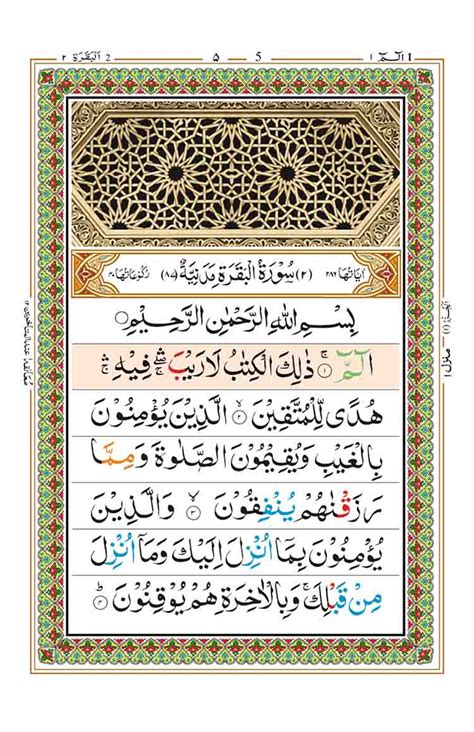 الٓمّٓ ١
5 ۵
2 البقرة ٢
اٰيَاتُهَا ٢٨٦ (٢) سُوْرَةُ الْبَقَرَةِ مَدَنِيَّةٌ (٨٧) رُكُوْعَاتُهَا ٤٠
بِسْمِ اللّٰهِ الرَّحْمٰنِ الرَّحِيْمِ
الٓمّٓ ۚ ﴿١﴾ ذٰلِكَ الْكِتٰبُ لَا رَيْبَ ۛۖ فِيْهِ ۛۚ
هُدًى لِّلْمُتَّقِيْنَ ۙ ﴿٢﴾ الَّذِيْنَ يُؤْمِنُوْنَ
بِالْغَيْبِ وَيُقِيْمُوْنَ الصَّلٰوةَ وَمِمَّا
رَزَقْنٰهُمْ يُنْفِقُوْنَ ۙ ﴿٣﴾ وَالَّذِيْنَ
يُؤْمِنُوْنَ بِمَاۤ اُنْزِلَ اِلَيْكَ وَمَاۤ اُنْزِلَ
مِنْ قَبْلِكَ ۚ وَبِالْاٰخِرَةِ هُمْ يُوْقِنُوْنَ ؕ ﴿٤﴾
منزل ١